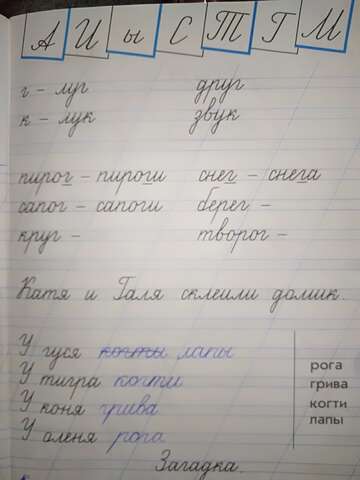 А И ы С Т Г М
г - луг друг
к - лук звук
пирог - пироги снег - снега
сапог - сапоги берег -
круг - творог -
Катя и Галя склеили домик.
У гуся когти лапы
У тигра когти
У коня грива
У оленя рога
рога
грива
когти
лапы
Загадка.